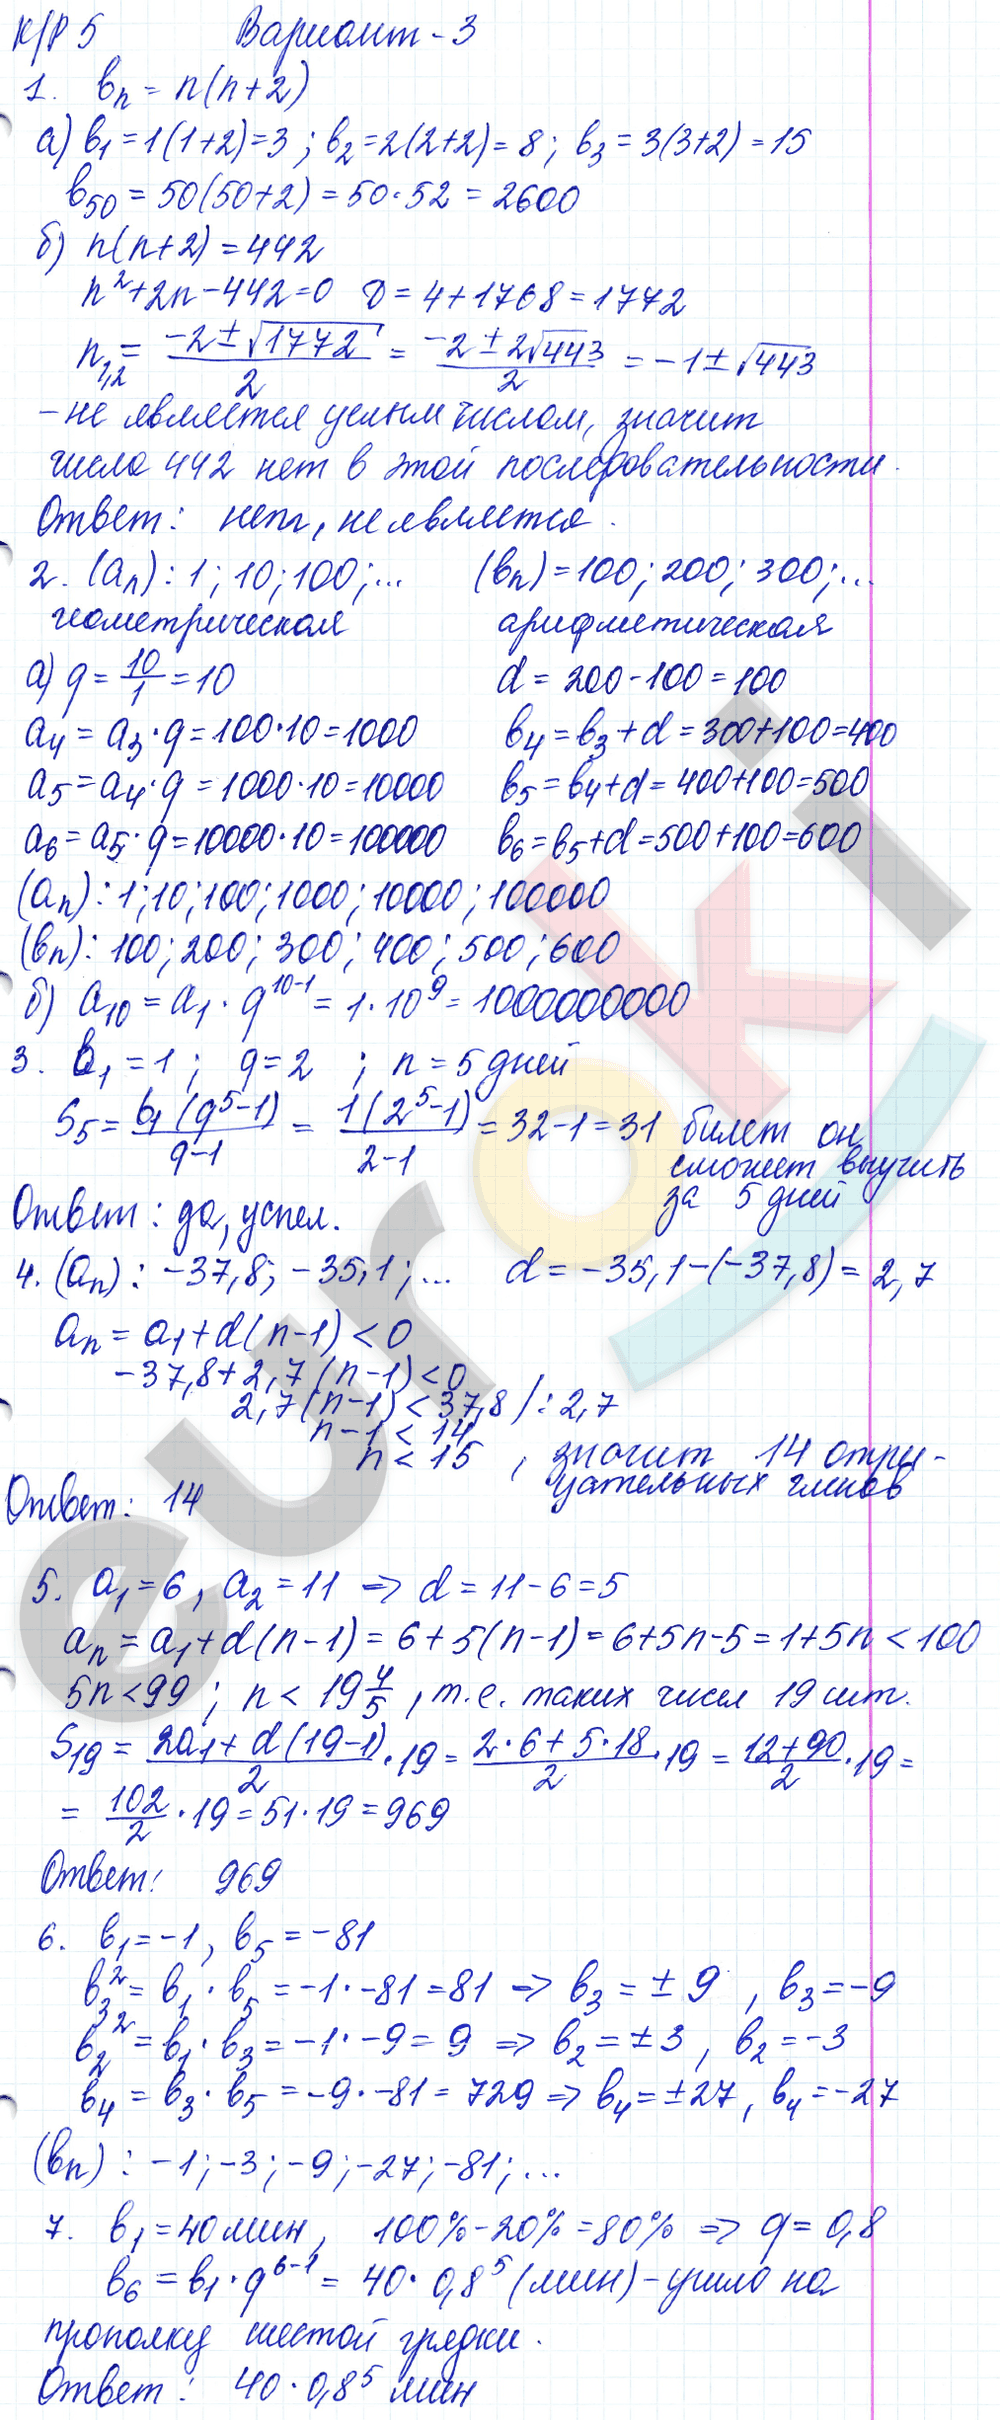 К/Р 5 Вариант - 3
1. bn = n(n+2)
а) b1 = 1(1+2)=3 ; b2 = 2(2+2) = 8 ; b3 = 3(3+2) = 15
b50 = 50(50+2) = 50·52 = 2600
б) n(n+2) = 442
n²+2n-442=0 D = 4+1768 = 1772
n1,2 = (-2±√1772)/2 = (-2±2√443)/2 = -1±√443
- не является целым числом, значит
числа 442 нет в этой последовательности.
Ответ: нет, не является.
2. (an): 1; 10; 100; ... (bn) = 100; 200; 300; ...
геометрическая арифметическая
а) q = 10/1 = 10 d = 200-100 = 100
a4 = a3·q = 100·10 = 1000 b4 = b3+d = 300+100=400
a5 = a4·q = 1000·10 = 10000 b5 = b4+d = 400+100=500
a6 = a5·q = 10000·10 = 100000 b6 = b5+d = 500+100=600
(an): 1; 10; 100; 1000; 10000; 100000
(bn): 100; 200; 300; 400; 500; 600
б) a10 = a1·q^10-1 = 1·10^9 = 1000000000
3. b1 = 1 ; q = 2 ; n = 5 дней
S5 = b1(q^5-1)/(q-1) = 1(2^5-1)/(2-1) = 32-1 = 31 билет он
сможет выучить
за 5 дней
Ответ: да, успел.
4. (an): -37,8; -35,1; ... d = -35,1-(-37,8) = 2,7
an = a1+d(n-1) < 0
-37,8+2,7(n-1) < 0
2,7(n-1) < 37,8 /: 2,7
n-1 < 14
n < 15 , значит 14 отри-
цательных членов
Ответ: 14
5. a1 = 6, a2 = 11 => d = 11-6 = 5
an = a1+d(n-1) = 6+5(n-1) = 6+5n-5 = 1+5n < 100
5n < 99 ; n < 19 4/5 , т.е. таких чисел 19 шт.
S19 = (2a1+d(19-1))/2 · 19 = (2·6+5·18)/2 · 19 = (12+90)/2 · 19 =
= 102/2 · 19 = 51·19 = 969
Ответ: 969
6. b1 = -1, b5 = -81
b3² = b1·b5 = -1·-81 = 81 => b3 = ±9 , b3 = -9
b2² = b1·b3 = -1·-9 = 9 => b2 = ±3 , b2 = -3
b4 = b3·b5 = -9·-81 = 729 => b4 = ±27, b4 = -27
(bn): -1; -3; -9; -27; -81; ...
7. b1 = 40 мин, 100%-20% = 80% => q = 0,8
b6 = b1·q^6-1 = 40·0,8^5 (мин) - ушло на
прополку шестой грядки.
Ответ: 40·0,8^5 мин
euroki